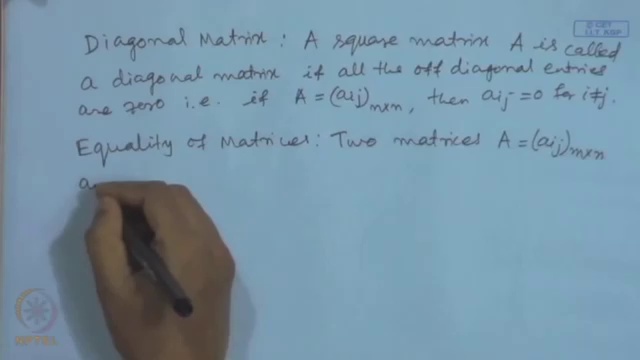 © CET
I.I.T. KGP
Diagonal Matrix : A square matrix A is called
a diagonal matrix if all the off diagonal entries
are zero i.e. if A = (aij)n×n, then aij = 0 for i≠j.
Equality of Matrices: Two matrices A = (aij)m×n
a
NPTEL